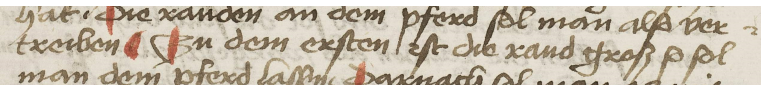 hat · Die rauden an dem pferd sol man also ver⸗
treiben Zu dem ersten ist die raud groß so sol
man dem pferd lassen Darnach sol man